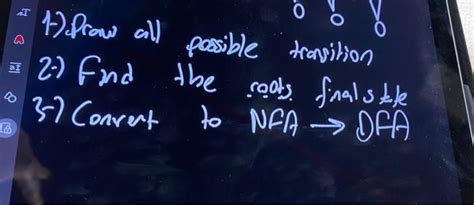 1-) Draw all possible transition
2-) Find the roots final state
3-) Convert to NFA → DFA